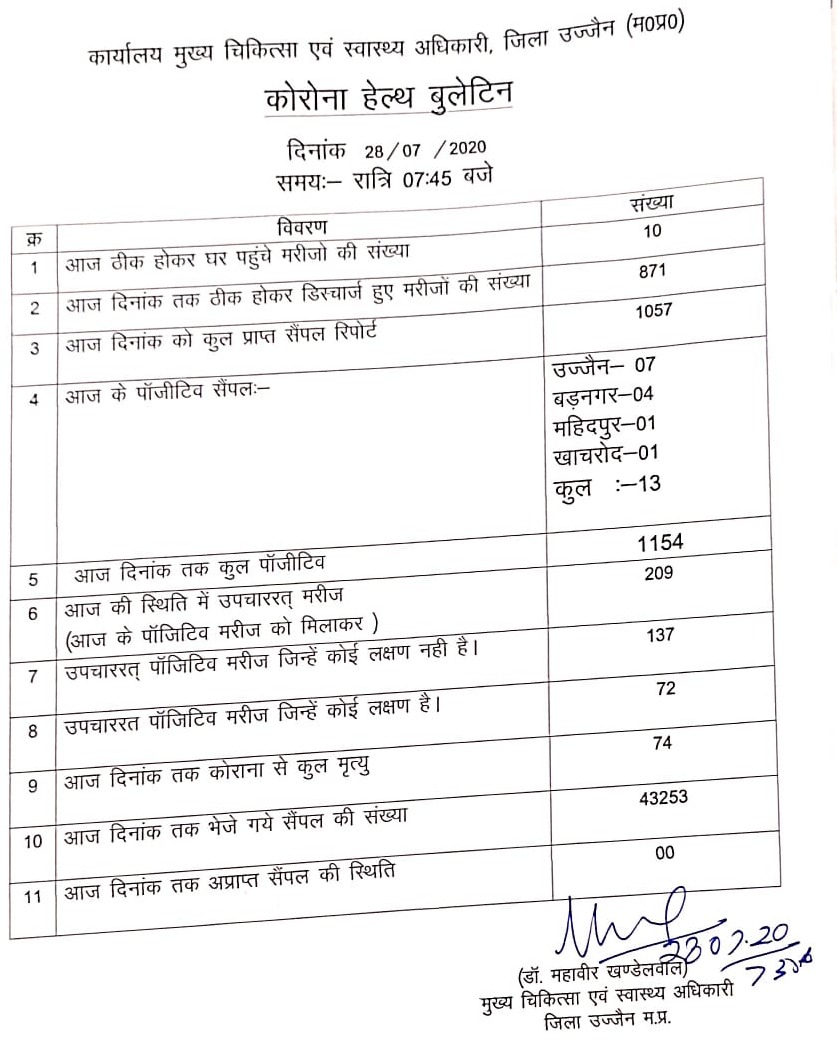 कार्यालय मुख्य चिकित्सा एवं स्वास्थ्य अधिकारी, जिला उज्जैन (म0प्र0)
कोरोना हेल्थ बुलेटिन
दिनांक 28/07 /2020
समयः– रात्रि 07:45 बजे
क्र विवरण संख्या
1 आज ठीक होकर घर पहुंचे मरीजो की संख्या 10
2 आज दिनांक तक ठीक होकर डिस्चार्ज हुए मरीजों की संख्या 871
3 आज दिनांक को कुल प्राप्त सैंपल रिपोर्ट 1057
4 आज के पॉजीटिव सैंपलः– उज्जैन– 07
बड़नगर–04
महिदपुर–01
खाचरोद–01
कुल :–13
5 आज दिनांक तक कुल पॉजीटिव 1154
6 आज की स्थिति में उपचाररत् मरीज 209
(आज के पॉजिटिव मरीज को मिलाकर )
7 उपचाररत् पॉजिटिव मरीज जिन्हें कोई लक्षण नही है। 137
8 उपचाररत पॉजिटिव मरीज जिन्हें कोई लक्षण है। 72
9 आज दिनांक तक कोराना से कुल मृत्यु 74
10 आज दिनांक तक भेजे गये सैंपल की संख्या 43253
11 आज दिनांक तक अप्राप्त सैंपल की स्थिति 00
(डॉ. महावीर खण्डेलवाल)
मुख्य चिकित्सा एवं स्वास्थ्य अधिकारी
जिला उज्जैन म.प्र.